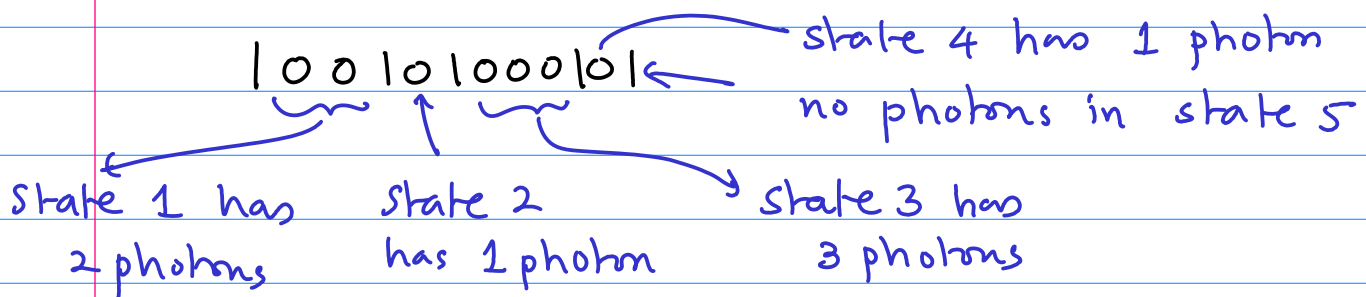 |00|0|000|0|
state 4 has 1 photon
no photons in state 5
state 1 has
2 photons
state 2
has 1 photon
state 3 has
3 photons